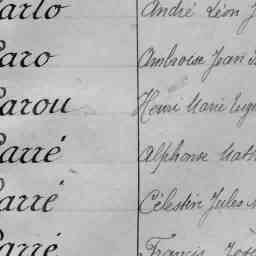 arlo André Léon J
aro Ambroise Jean
arou Henri Marie Eug
arré Alphonse Math
arré Célestin Jules
arré Francis José